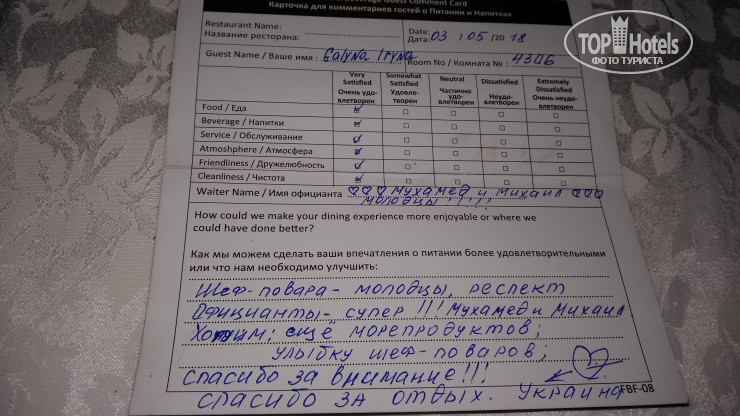 Beverage Guest Comment Card
Карточка для комментариев гостей о Питании и Напитках
TOP Hotels
ФОТО ТУРИСТА
Restaurant Name:
Название ресторана:
Date:
Дата: 03 / 05 /20 18
Guest Name / Ваше имя : Galyna Iryna Room No / Комната № : 4306
Very Satisfied Очень удо-влетворен
Somewhat Satisfied Удовле-творен
Neutral Частично удо-влетворен
Dissatisfied Неудо-влетворен
Extremely Dissatisfied Очень неудо-влетворен
Food / Еда
Beverage / Напитки
Service / Обслуживание
Atmoshphere / Атмосфера
Friendliness / Дружелюбность
Cleanliness / Чистота
Waiter Name / Имя официанта Мухамед и Михаил
молодцы !!!!!
How could we make your dining experience more enjoyable or where we
could have done better?
Как мы можем сделать ваши впечатления о питании более удовлетворительными
или что нам необходимо улучшить:
Шеф-повара - молодцы, респект
Официанты - супер !!! Мухамед и Михаил
Хотим; ещё морепродуктов;
улыбку шеф-поваров;
спасибо за внимание!!!
спасибо за отдых. Украина
FBF-08